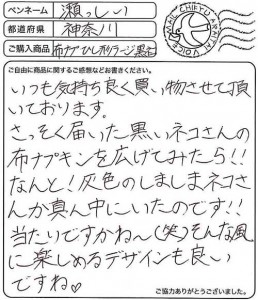 ペンネーム 瀬っしい
都道府県 神奈川
ご購入商品
MAIL CHIKYU
VOICE
ご自由に商品に関するご感想などお書きください。
いつも気持ち良く買い物させて頂
いております。
さっそく届いた黒いネコさんの
布ナプキンを広げてみたら!!
なんと!灰色のしましまネコさ
んが真ん中にいたのです!!
当たりですかね〜(笑)そんな風
に楽しめるデザインも良い
ですね♡
ご協力ありがとうございました。